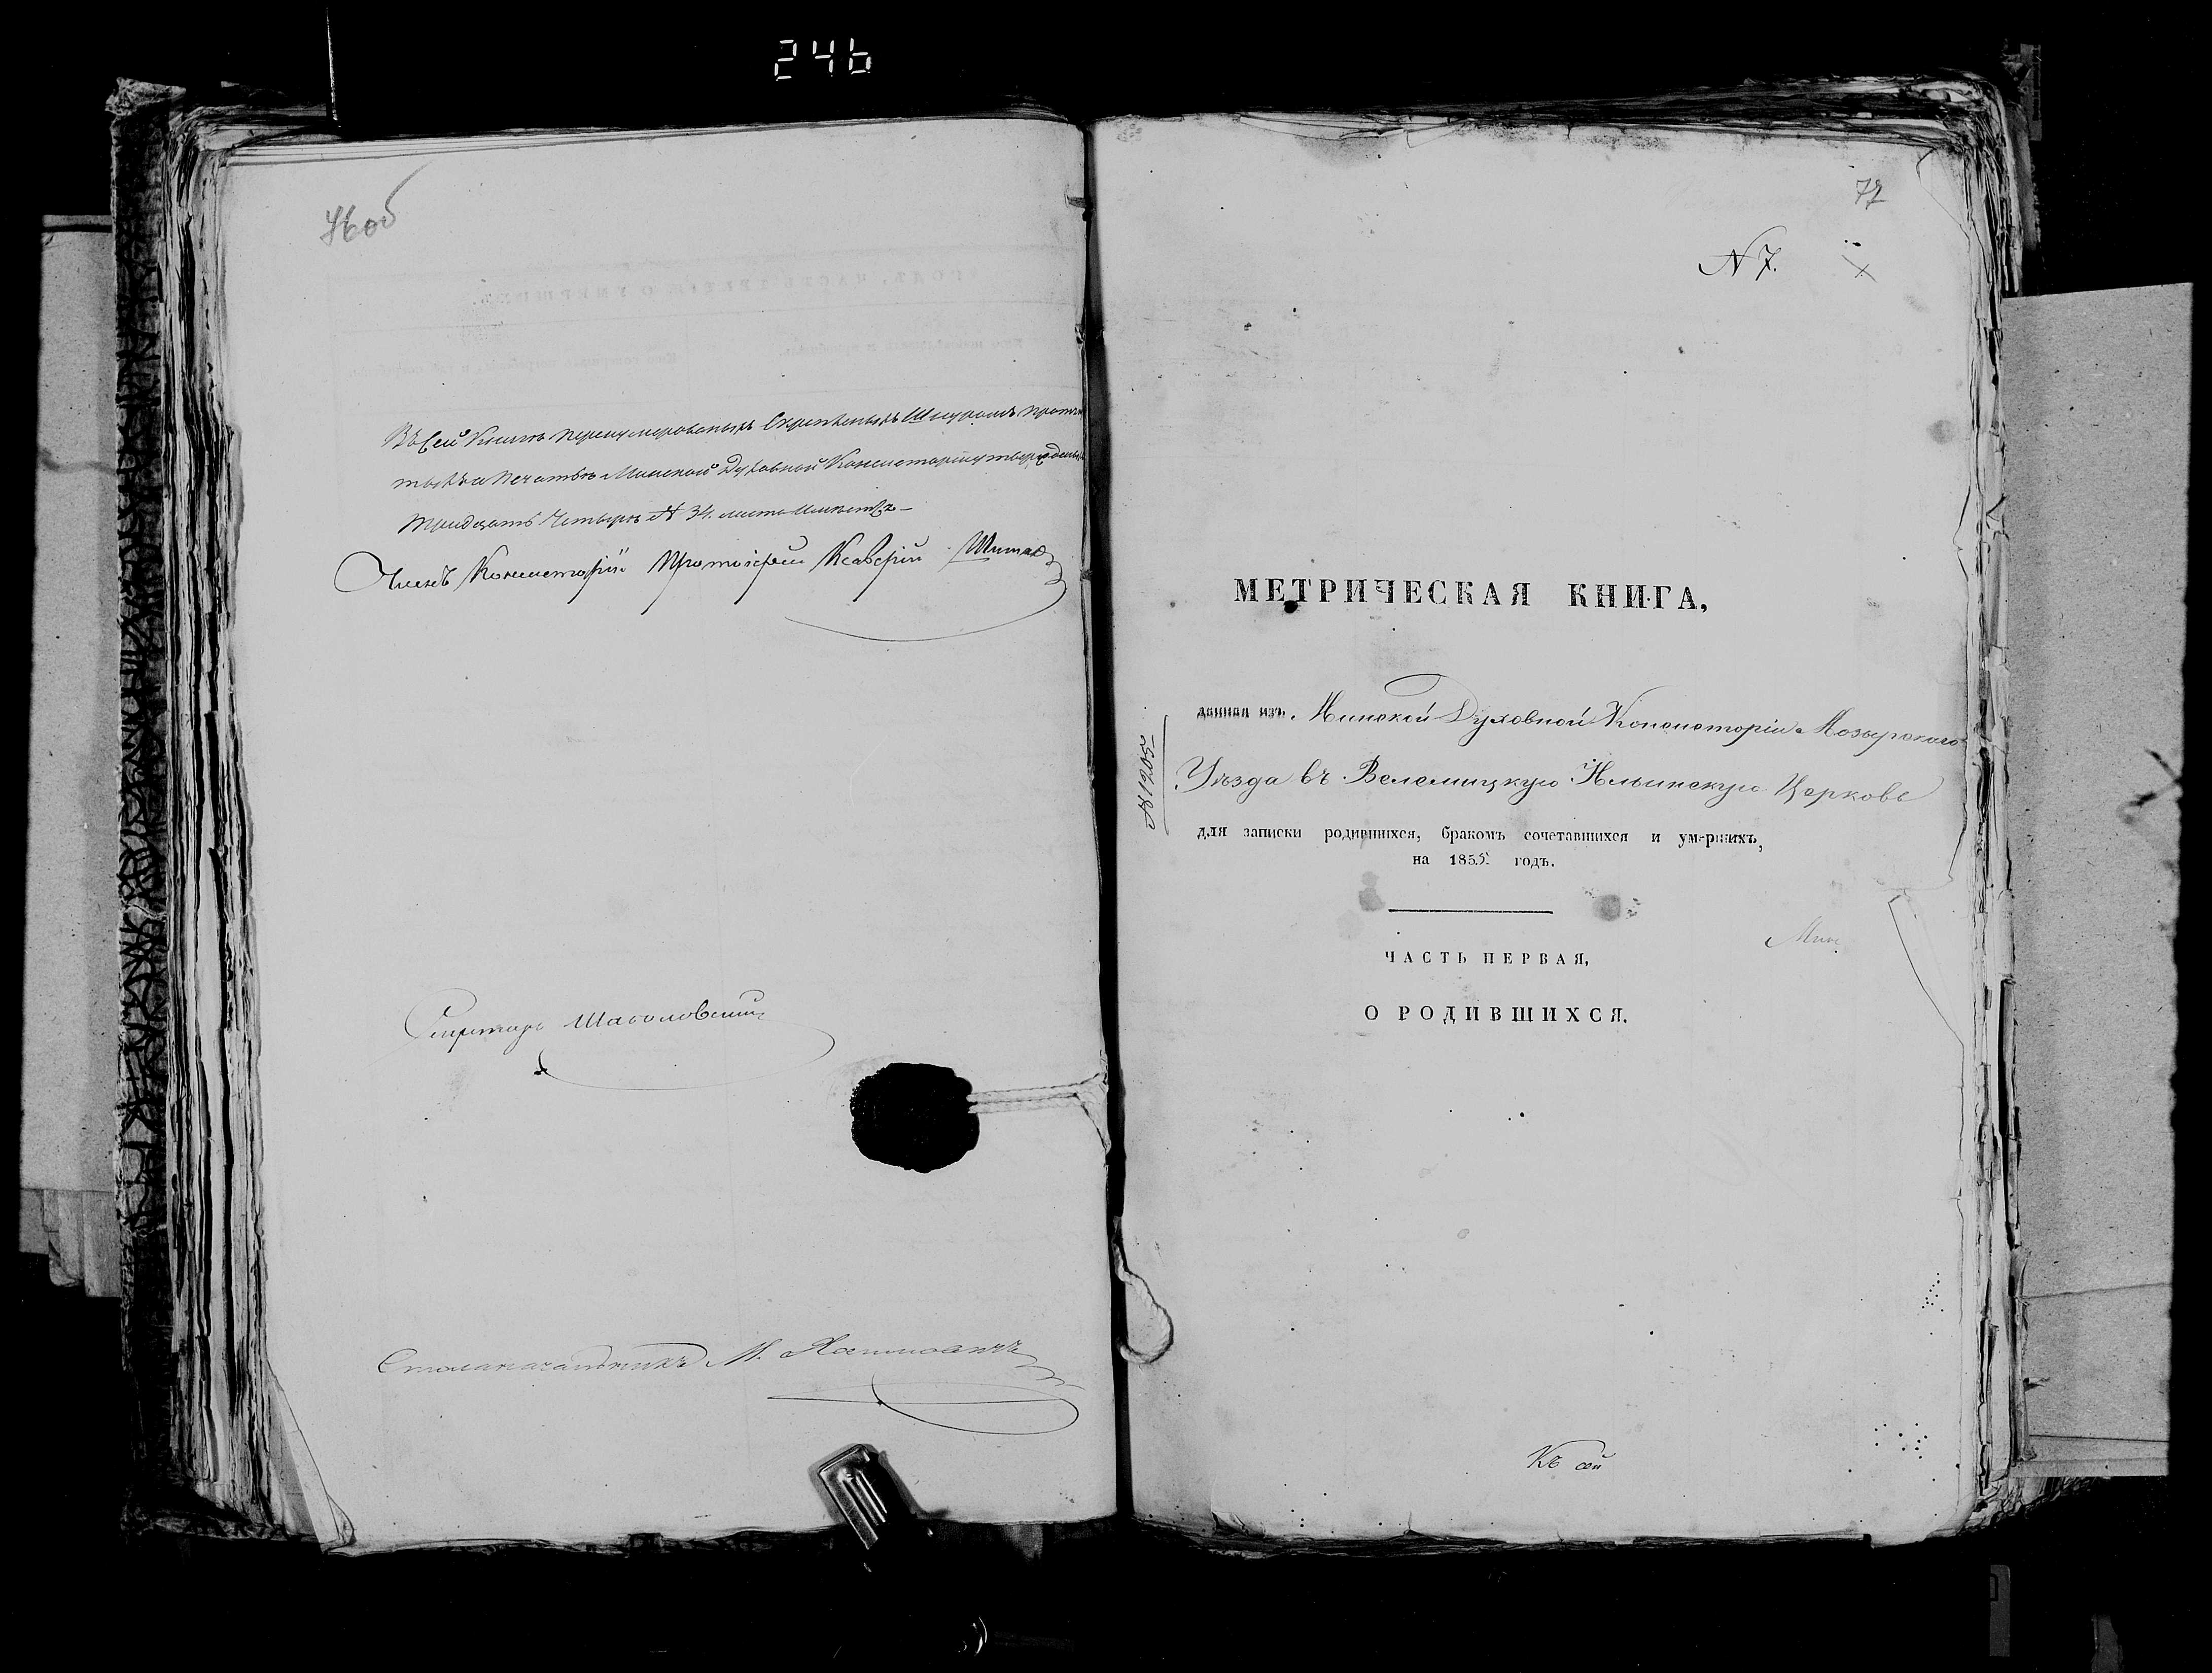 246
76об
Въ сей Книгѣ перенумерованныхъ Скрепленныхъ Шнуромъ протя
тыхъ и печатью Минской Духовной Консисторіи утвержденныхъ
тридцать четыре № 34. листа имѣется
Членъ Консисторіи Протоіерей Ксаверій
Секретарь
Столоначальникъ М.
77
N 7.
МЕТРИЧЕСКАЯ КНИГА,
данная изъ Минской Духовной Консисторіи Мозырскаго
Уѣзда въ Велемицкую Ильинскую Церковь
№ 19205
для записки родившихся, бракомъ сочетавшихся и умершихъ,
на 1855 годъ.
Мин
ЧАСТЬ ПЕРВАЯ,
О РОДИВШИХСЯ.
Къ сей